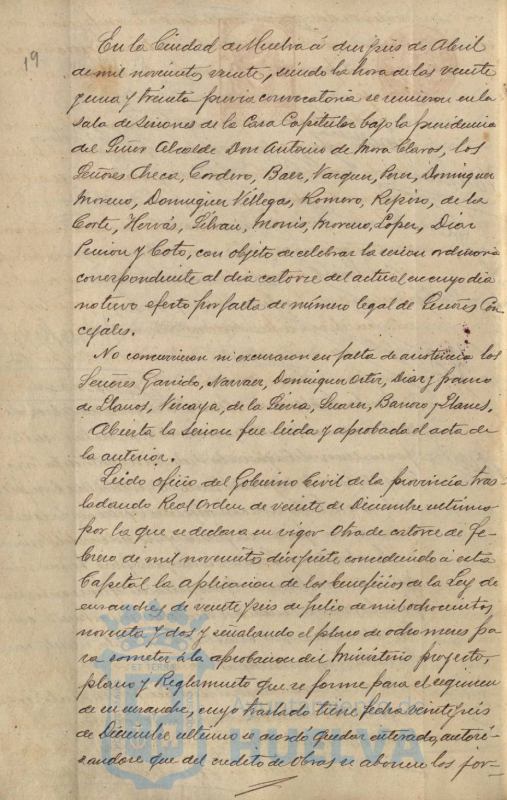 19
En la Ciudad de Huelva á diez y seis de Abril
de mil novecientos veinte, siendo la hora de las veinte
y una y treinta previa convocatoria se reunieron en la
Sala de Sesiones de la Casa Capitular bajo la presidencia
del Señor Alcalde Don Antonio de Mora Claros, los
Señores Checa, Cordero, Baez, Vazquez, Perez, Dominguez
Moreno, Dominguez Villegas, Romero, Repiso, de la
Corte, Hervás, Silvan, Monis, Moreno, Lopez, Diaz
y Coto, con objeto de celebrar la sesion ordinaria
correspondiente al dia catorce del actual en cuyo dia
no tuvo efecto por falta de número legal de Señores Con-
cejales.
No concurrieron ni excusaron su falta de asistencia los
Señores Garrido, Narvaez, Dominguez Diaz y Franco
de Llanos, Vizcaya, de la Suarez, y Llanes.
Abierta la sesion fue leida y aprobada el acta de
la anterior.
Leido oficio del Gobierno Civil de la provincia tras-
ladando Real Orden de veinte de Diciembre ultimo
por la que se declara en vigor otra de catorce de Fe-
brero de mil novecientos diez y siete concediendo á esta
Capital la aplicacion de los beneficios de la Ley de
ensanches de veinte y seis de Julio de mil ochocientos
noventa y dos y señalando el plazo de ocho meses pa-
ra someter á la aprobacion del Ministerio proyecto,
plano y Reglamento que se forme para el regimen
de su ensanche, cuyo traslado tiene fecha veinte y seis
de Diciembre ultimo se acordó quedar enterado, autori-
zandose que del credito de Obras se abonen los for-
HUELVA